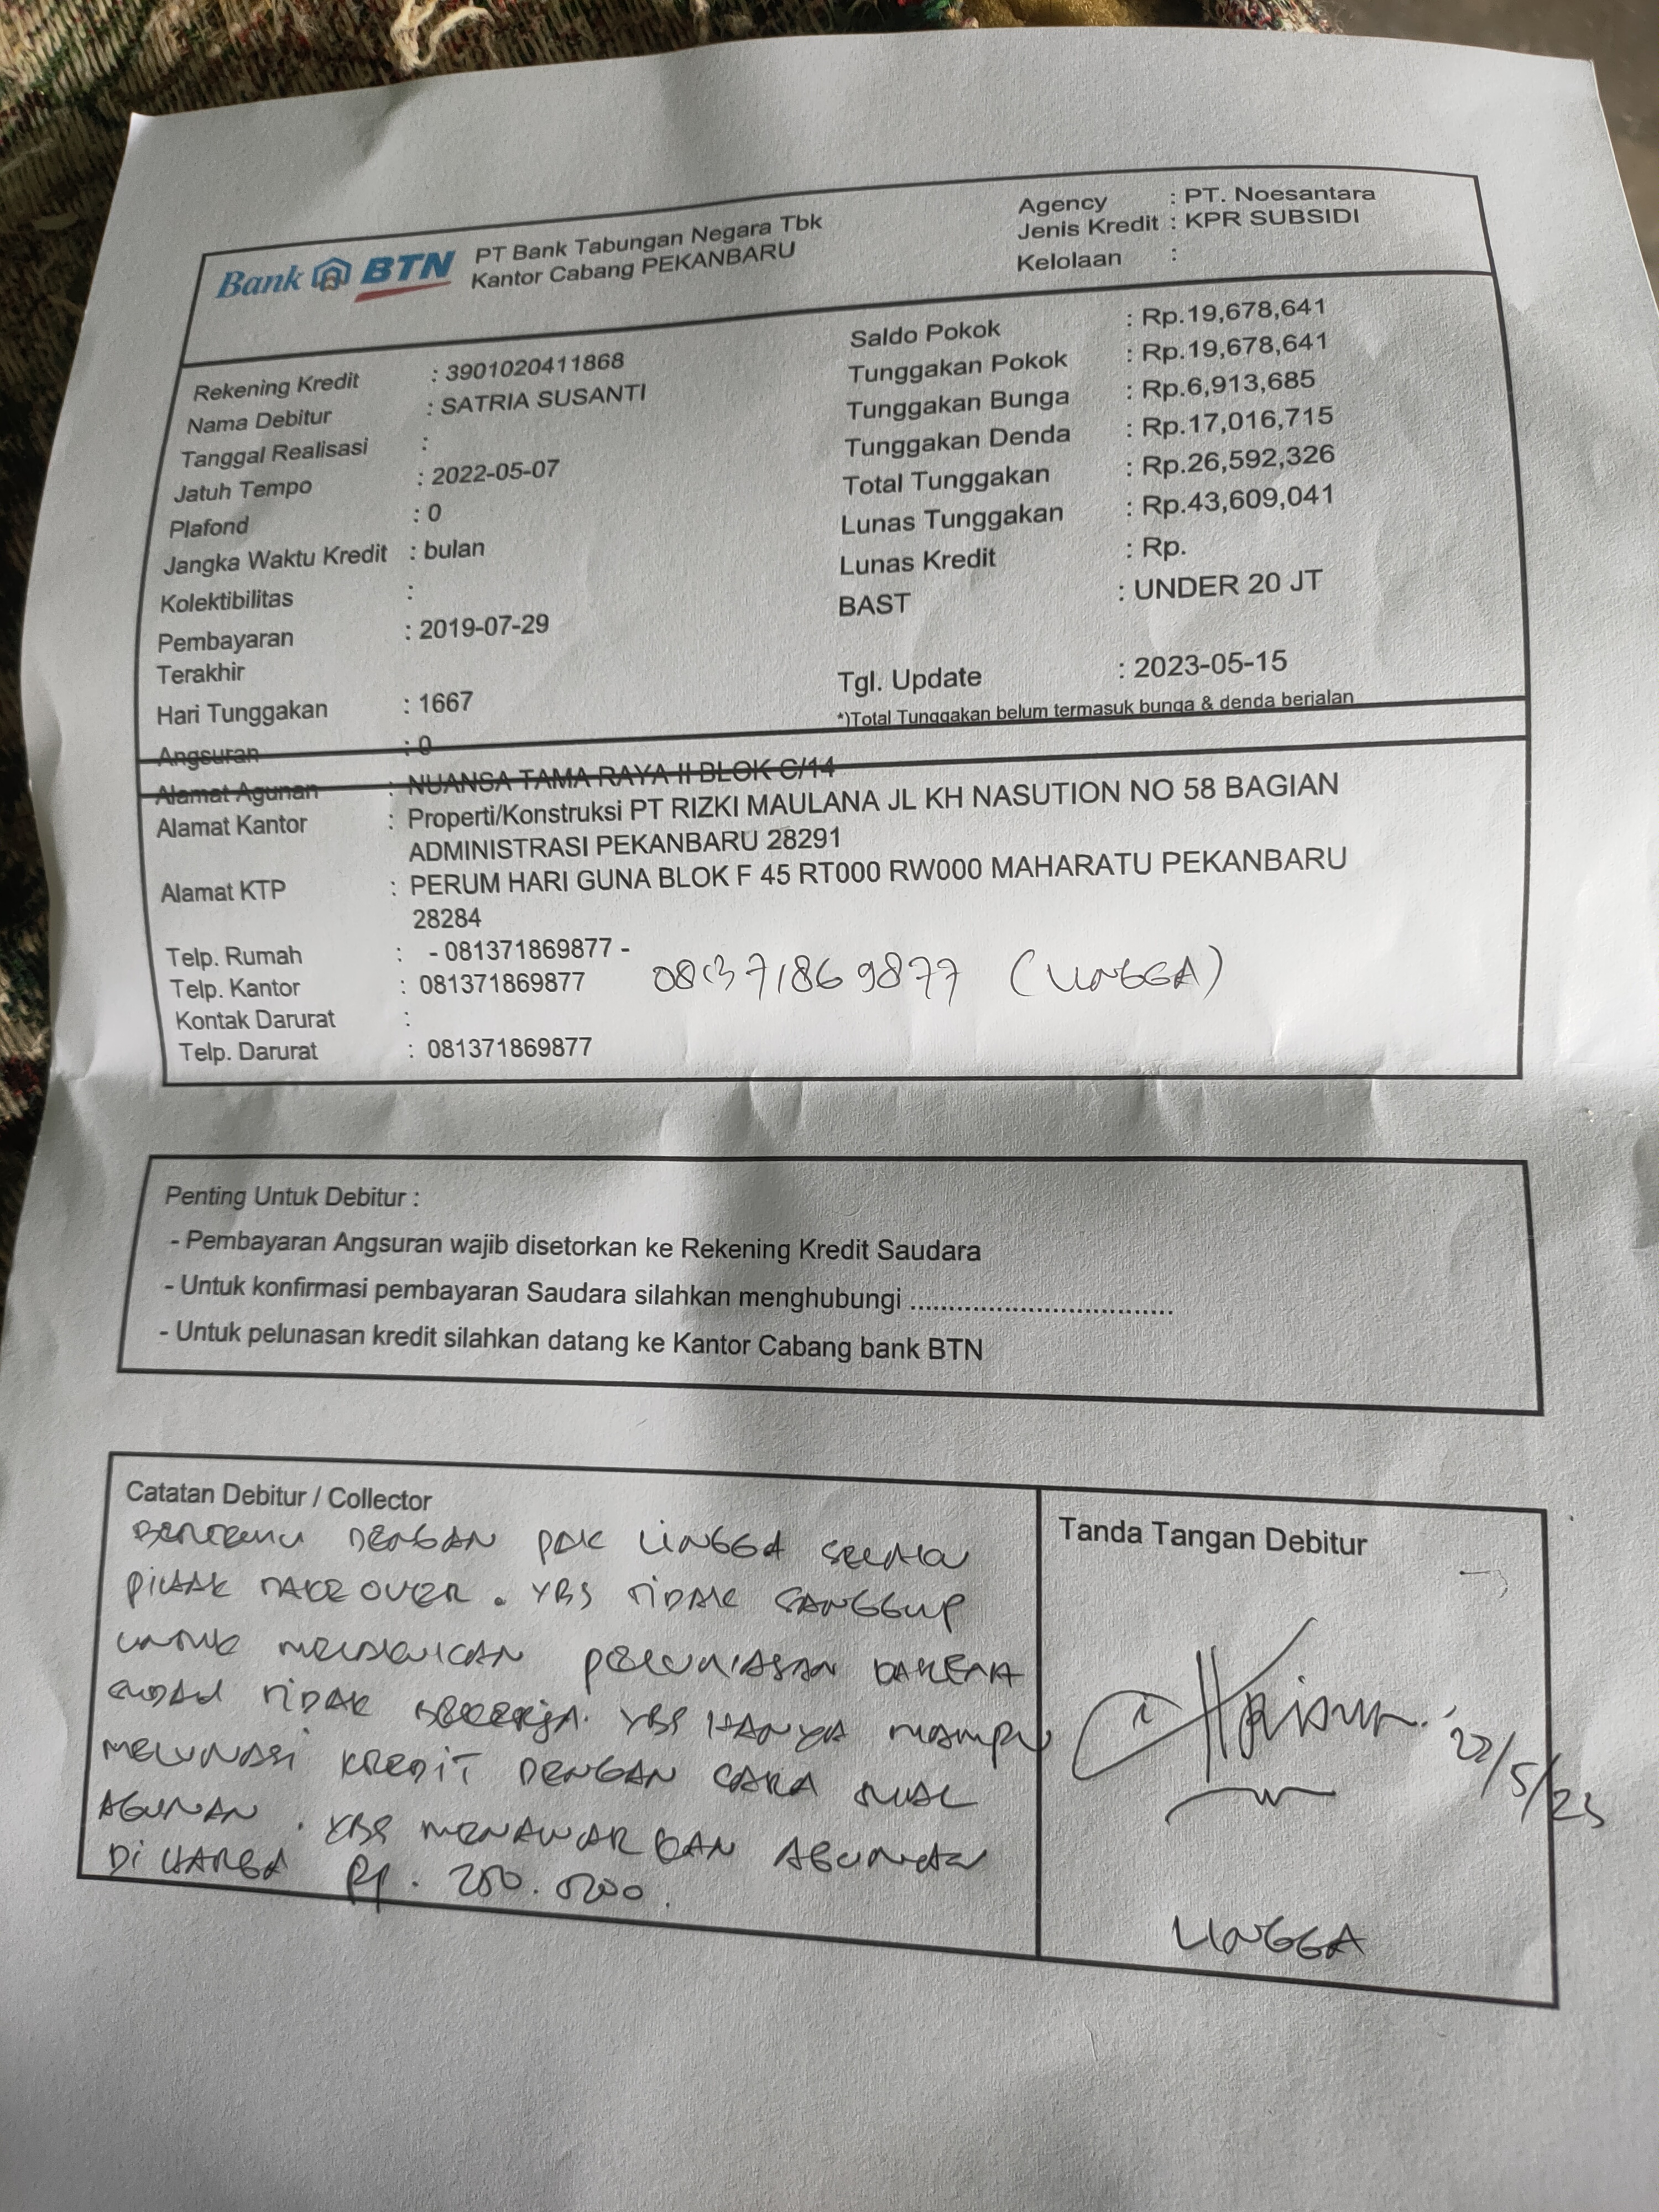 Bank BTN PT Bank Tabungan Negara Tbk
Kantor Cabang PEKANBARU
Agency : PT. Noesantara
Jenis Kredit : KPR SUBSIDI
Kelolaan :
Rekening Kredit : 3901020411868
Nama Debitur : SATRIA SUSANTI
Tanggal Realisasi :
Jatuh Tempo : 2022-05-07
Plafond : 0
Jangka Waktu Kredit : bulan
Kolektibilitas :
Pembayaran : 2019-07-29
Terakhir
Hari Tunggakan : 1667
Angsuran : 0
Saldo Pokok : Rp.19,678,641
Tunggakan Pokok : Rp.19,678,641
Tunggakan Bunga : Rp.6,913,685
Tunggakan Denda : Rp.17,016,715
Total Tunggakan : Rp.26,592,326
Lunas Tunggakan : Rp.43,609,041
Lunas Kredit : Rp.
BAST : UNDER 20 JT
Tgl. Update : 2023-05-15
*)Total Tunggakan belum termasuk bunga & denda berjalan
Alamat Agunan : NUANSA TAMA RAYA II BLOK C/14
Alamat Kantor : Properti/Konstruksi PT RIZKI MAULANA JL KH NASUTION NO 58 BAGIAN
ADMINISTRASI PEKANBARU 28291
Alamat KTP : PERUM HARI GUNA BLOK F 45 RT000 RW000 MAHARATU PEKANBARU
28284
Telp. Rumah : - 081371869877 -
Telp. Kantor : 081371869877 081371869877 (LINGGA)
Kontak Darurat :
Telp. Darurat : 081371869877
Penting Untuk Debitur :
- Pembayaran Angsuran wajib disetorkan ke Rekening Kredit Saudara
- Untuk konfirmasi pembayaran Saudara silahkan menghubungi ..................................
- Untuk pelunasan kredit silahkan datang ke Kantor Cabang bank BTN
Catatan Debitur / Collector
BERTEMU DENGAN PAK LINGGA SELAKU
PIHAK TAKE OVER . YBS TIDAK SANGGUP
UNTUK MELAKUKAN PELUNASAN KARENA
SUDAH TIDAK BEKERJA. YBS HANYA MAMPU
MELUNASI KREDIT DENGAN CARA JUAL
AGUNAN . YBS MENAWARKAN AGUNAN
DI HARGA Rp.
Tanda Tangan Debitur
22/5/23
LINGGA